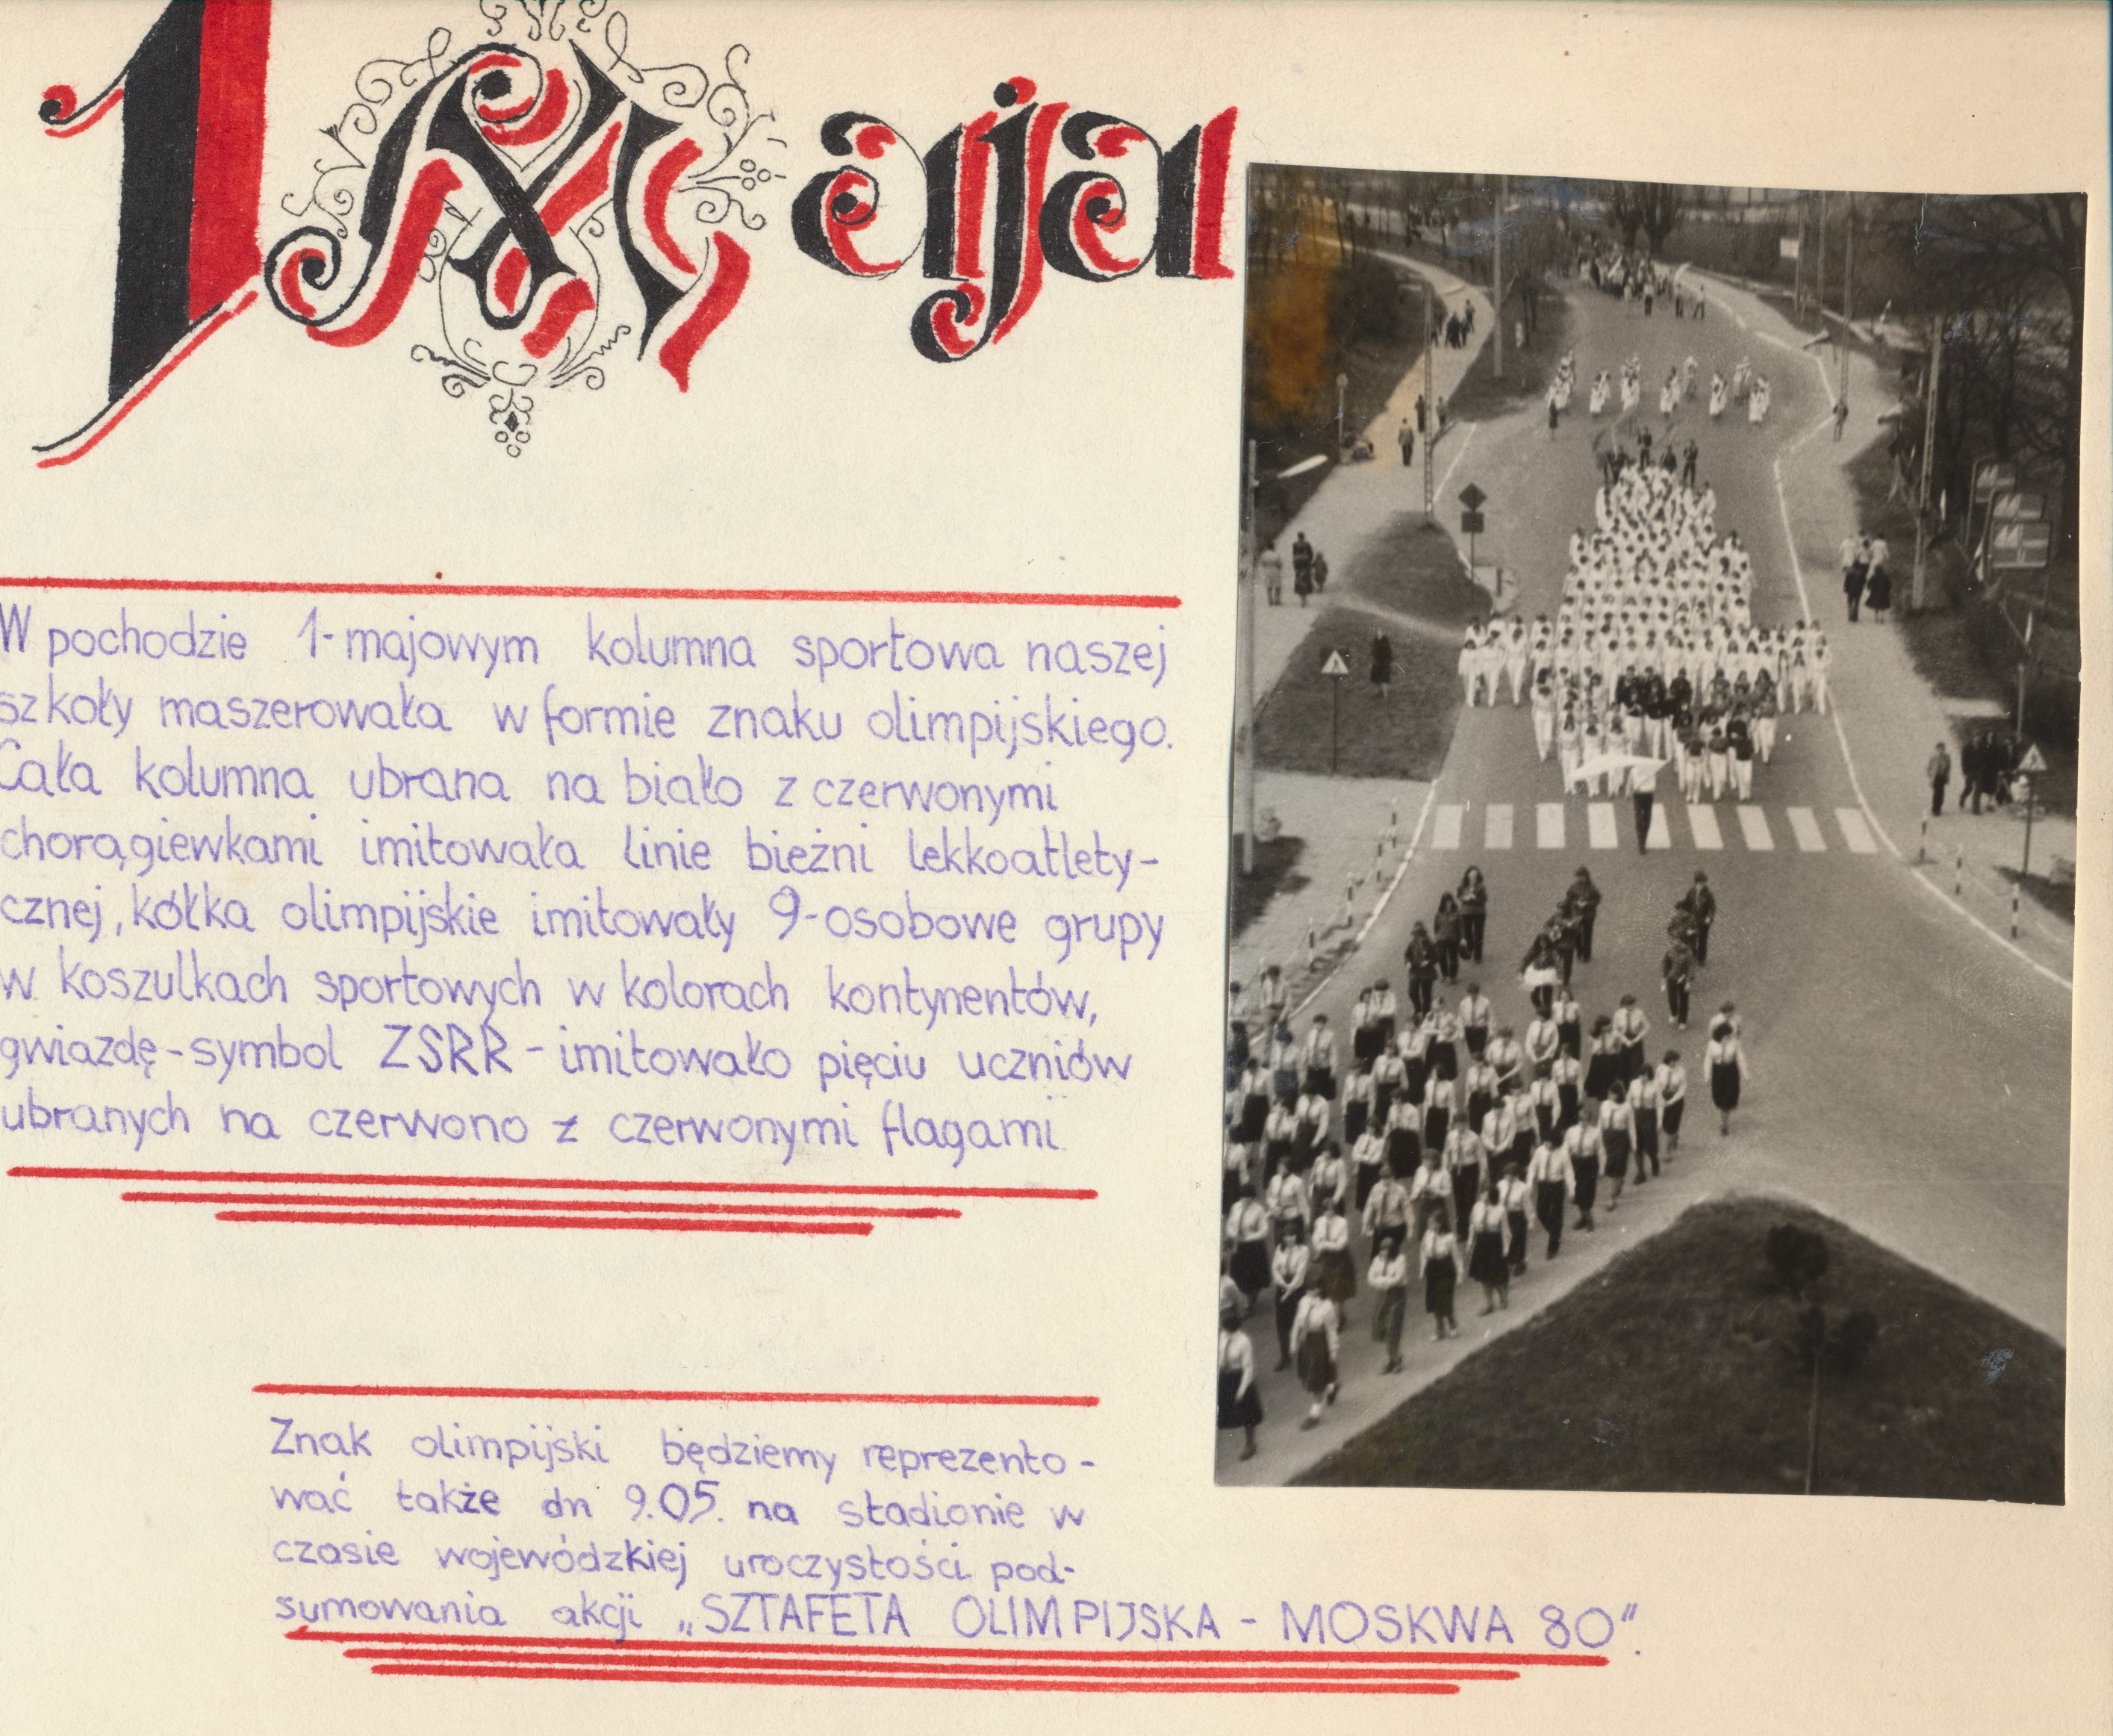 1 Maja
W pochodzie 1-majowym kolumna sportowa naszej
szkoły maszerowała w formie znaku olimpijskiego.
Cała kolumna ubrana na biało z czerwonymi
chorągiewkami imitowała linie bieżni lekkoatlety-
cznej, kółka olimpijskie imitowały 9-osobowe grupy
w koszulkach sportowych w kolorach kontynentów,
gwiazdę-symbol ZSRR-imitowało pięciu uczniów
ubranych na czerwono z czerwonymi flagami
Znak olimpijski będziemy reprezento-
wać także dn 9.05. na stadionie w
czasie wojewódzkiej uroczystości pod-
sumowania akcji „SZTAFETA OLIMPIJSKA - MOSKWA 80".